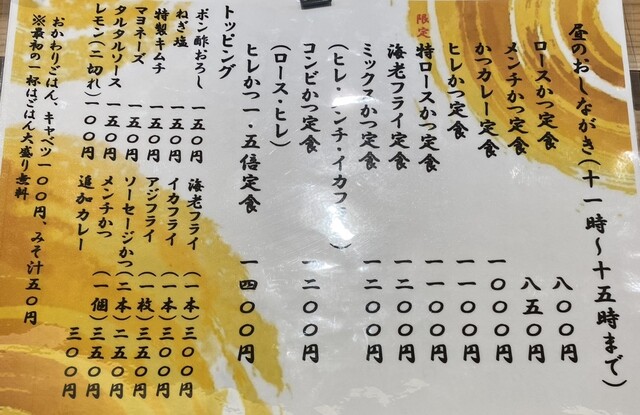 昼のおしながき(十一時〜十五時まで)
ロースかつ定食 八〇〇円
メンチかつ定食 八五〇円
かつカレー定食 一〇〇〇円
ヒレかつ定食 一一〇〇円
限定 特ロースかつ定食 一一〇〇円
海老フライ定食 一二〇〇円
ミックスかつ定食 一二〇〇円
(ヒレ・メンチ・イカフライ)
コンビかつ定食 一二〇〇円
(ロース・ヒレ)
ヒレかつ一・五倍定食 一四〇〇円
トッピング
ポン酢おろし 一五〇円
ねぎ塩 一五〇円
特製キムチ 一五〇円
マヨネーズ 一五〇円
タルタルソース 一五〇円
レモン(二切れ) 一〇〇円
海老フライ (一本) 三〇〇円
イカフライ (一本) 三〇〇円
アジフライ (一枚) 三五〇円
ソーセージかつ (二本) 二五〇円
メンチかつ (一個) 三五〇円
追加カレー 三〇〇円
おかわりごはん、キャベツ一〇〇円、みそ汁五〇円
※最初の一杯はごはん大盛り無料